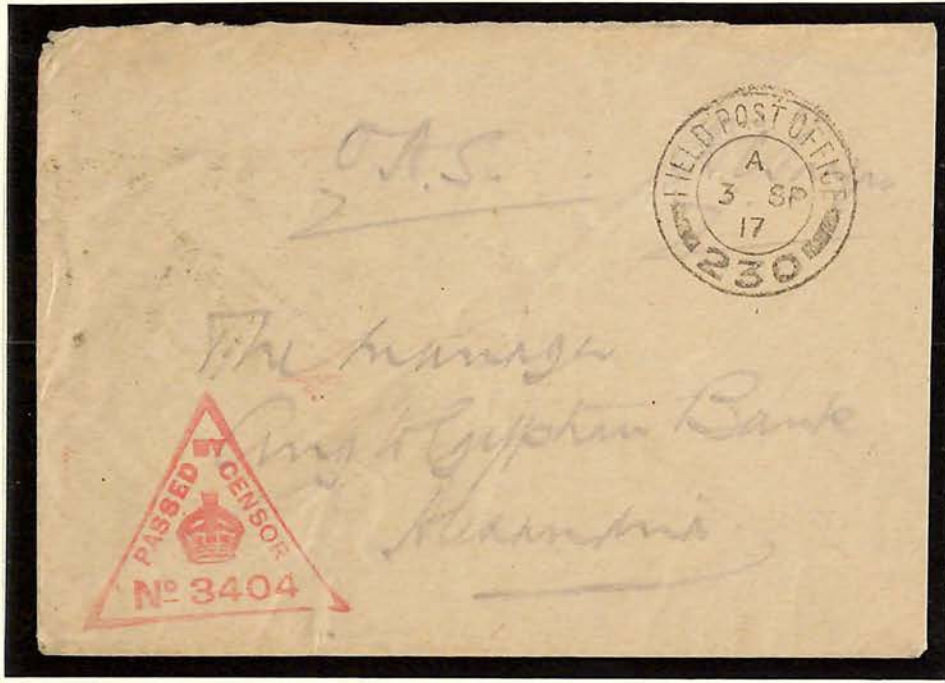 O.A.S.
FIELD POST OFFICE
A
3 SP
17
230
The Manager
Anglo Egyptian Bank
Alexandria
PASSED BY CENSOR
Nº 3404